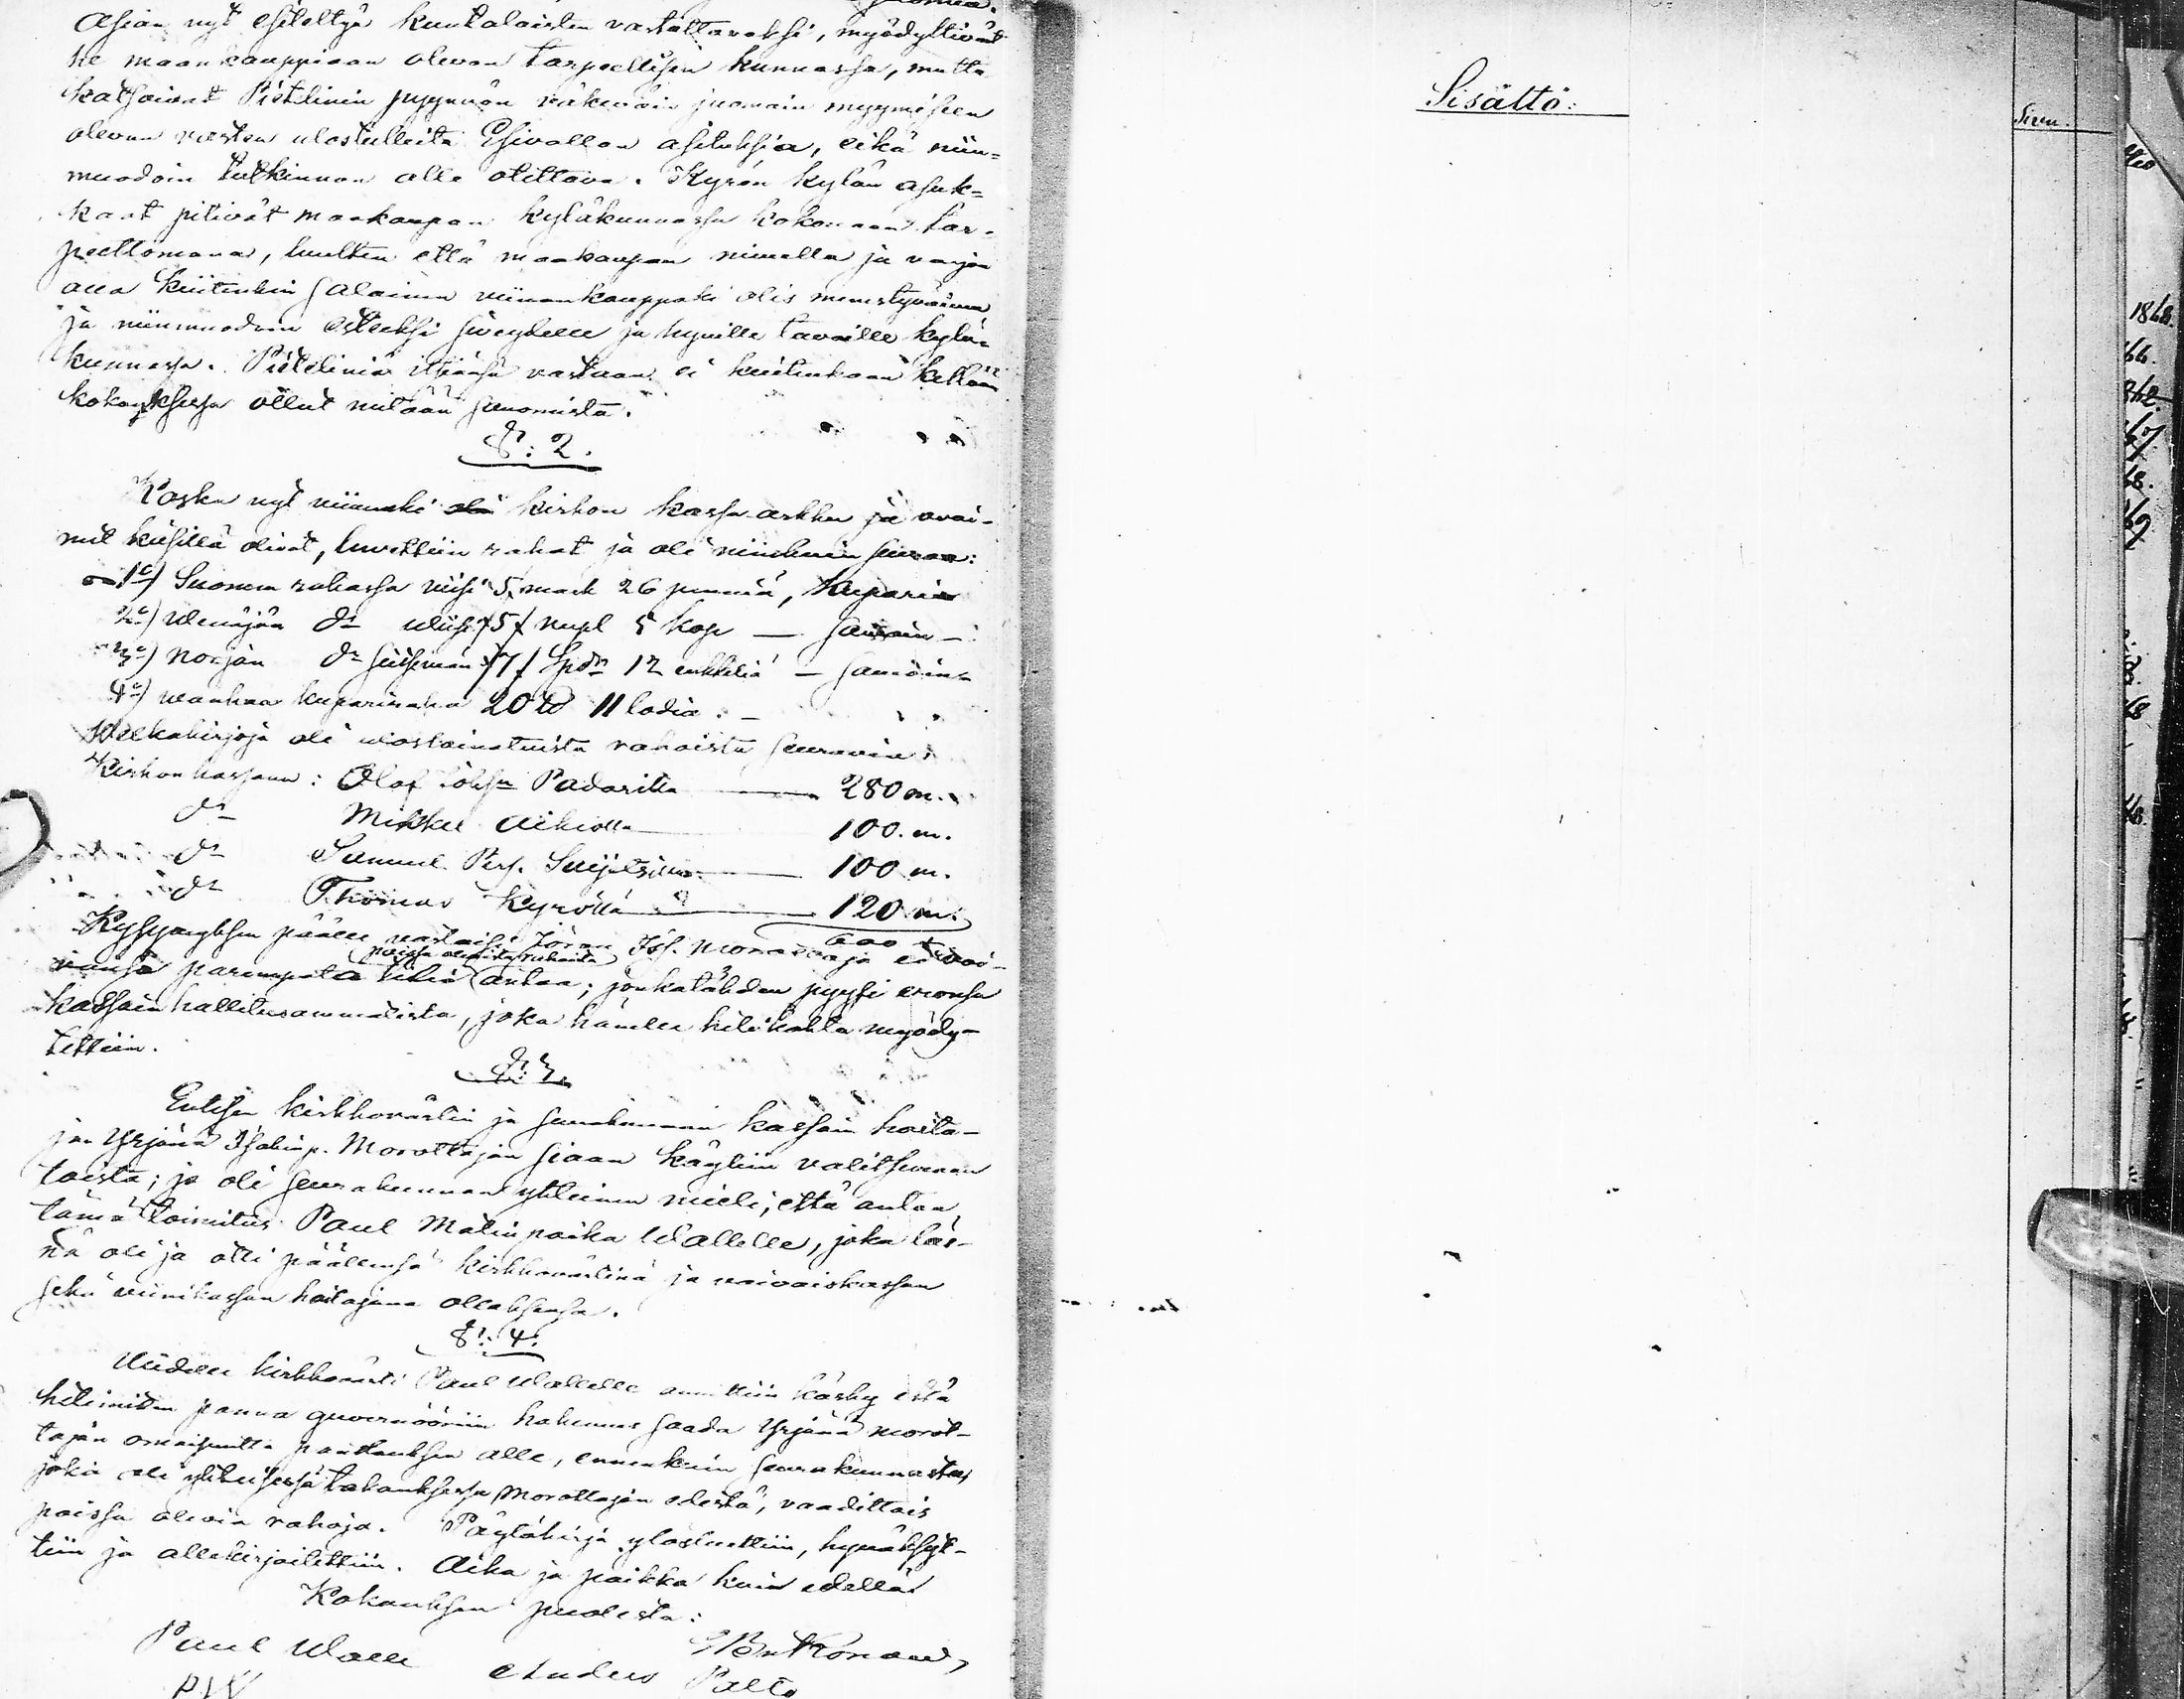 Asian nyt esiteltyä kuntalaisten vastattavaksi, myödyttivät
he maankauppiaan olevan tarpeellisen kunnassa, mutta
katsoivat Pietilinin pyynnön väkeväin juomain myymiseen
olevan vasten ulostulleita Esivallan asetuksia, eikä niin-
muodoin tutkinnon alle otettava. Kyrön kylän asuk-
kaat pitivät maakaupan kyläkunnassa kokonaan tar-
peettomana, luullen että maakaupan nimellä ja varjon
alla kuitenkin salainen viinankauppaki olis menestyväinen
ja niinmuodoin esteeksi siveydelle ja hyville tavoille kylä-
kunnassa. Pieteliniä itseänsä vastaan ei kuitenkaan kellään
kokouksessa ollut mitään sanomista.
§: 2.
Koska nyt viimeki kirkon kassa arkku ja avai-
met käsillä olivat, luvettiin rahat ja oli niinkuin seuraa:
1:o) Suomen rahassa viisi 5 mark 26 penniä, kuparia
2:o) Wenäjän d:o wiisi /5/ rupl 5 kop — samoin —
3:o) Norjan d:o seitsemän /7/ Spd:r 12 enkkeliä — samoin
4:o) wanhaa kupariraha 20 ℔ 11 lodia. —
Welkakirjoja oli ulostainatuista rahoista seuraavia:
Kirkon kassaan: Olof Padarilla — 280 m.
d:o Mikkel Aikiolla — 100. m.
d:o Samuel Pers. — 100 m.
d:o Thomas Kyröllä — 120 m.
600
Kysymyksen päälle vastaisi Jöran Is. Morottaja ei voi-
poissa olevista rahoista
vansa parempata tiliä antaa; jonkatähden pyysi eronsa
kassain hallitusammatista, joka hänelle kiliskalta myödy-
tettiin.
§: 3.
Entisen kirkkovärtin ja seurakunnan kassain hoita-
jan Yrjänä Isakinp. Morottajan siaan käytiin valitsemaan
toista; ja oli seurakunnan yhteinen mieli, että antaa
tämä toimitus Paul Matinpoika Wallelle, joka läs-
nä oli ja otti päällensä kirkkovärtinä ja vaivaiskassan
sekä viinikassan hoitajana ollaksensa.
§: 4.
Uudelle kirkkovärti Paul Wallelle annettiin käsky että
panna guvernööriin hakemus saada Yrjänä Morot-
tajan omaisuutta panttauksen alle, ennenkuin seurakunnasta,
joka oli yhteisessä takauksessa Morottajan edestä, vaadittais
poissa olevia rahoja. Pöytäkirja ylösluettiin, hyväksyt-
tiin ja allekirjoitettiin. Aika ja paikka kuin edellä
Kokouksen puolesta:
Paul Walle Anders Palto
P.W
Sisältö:
Sivu.